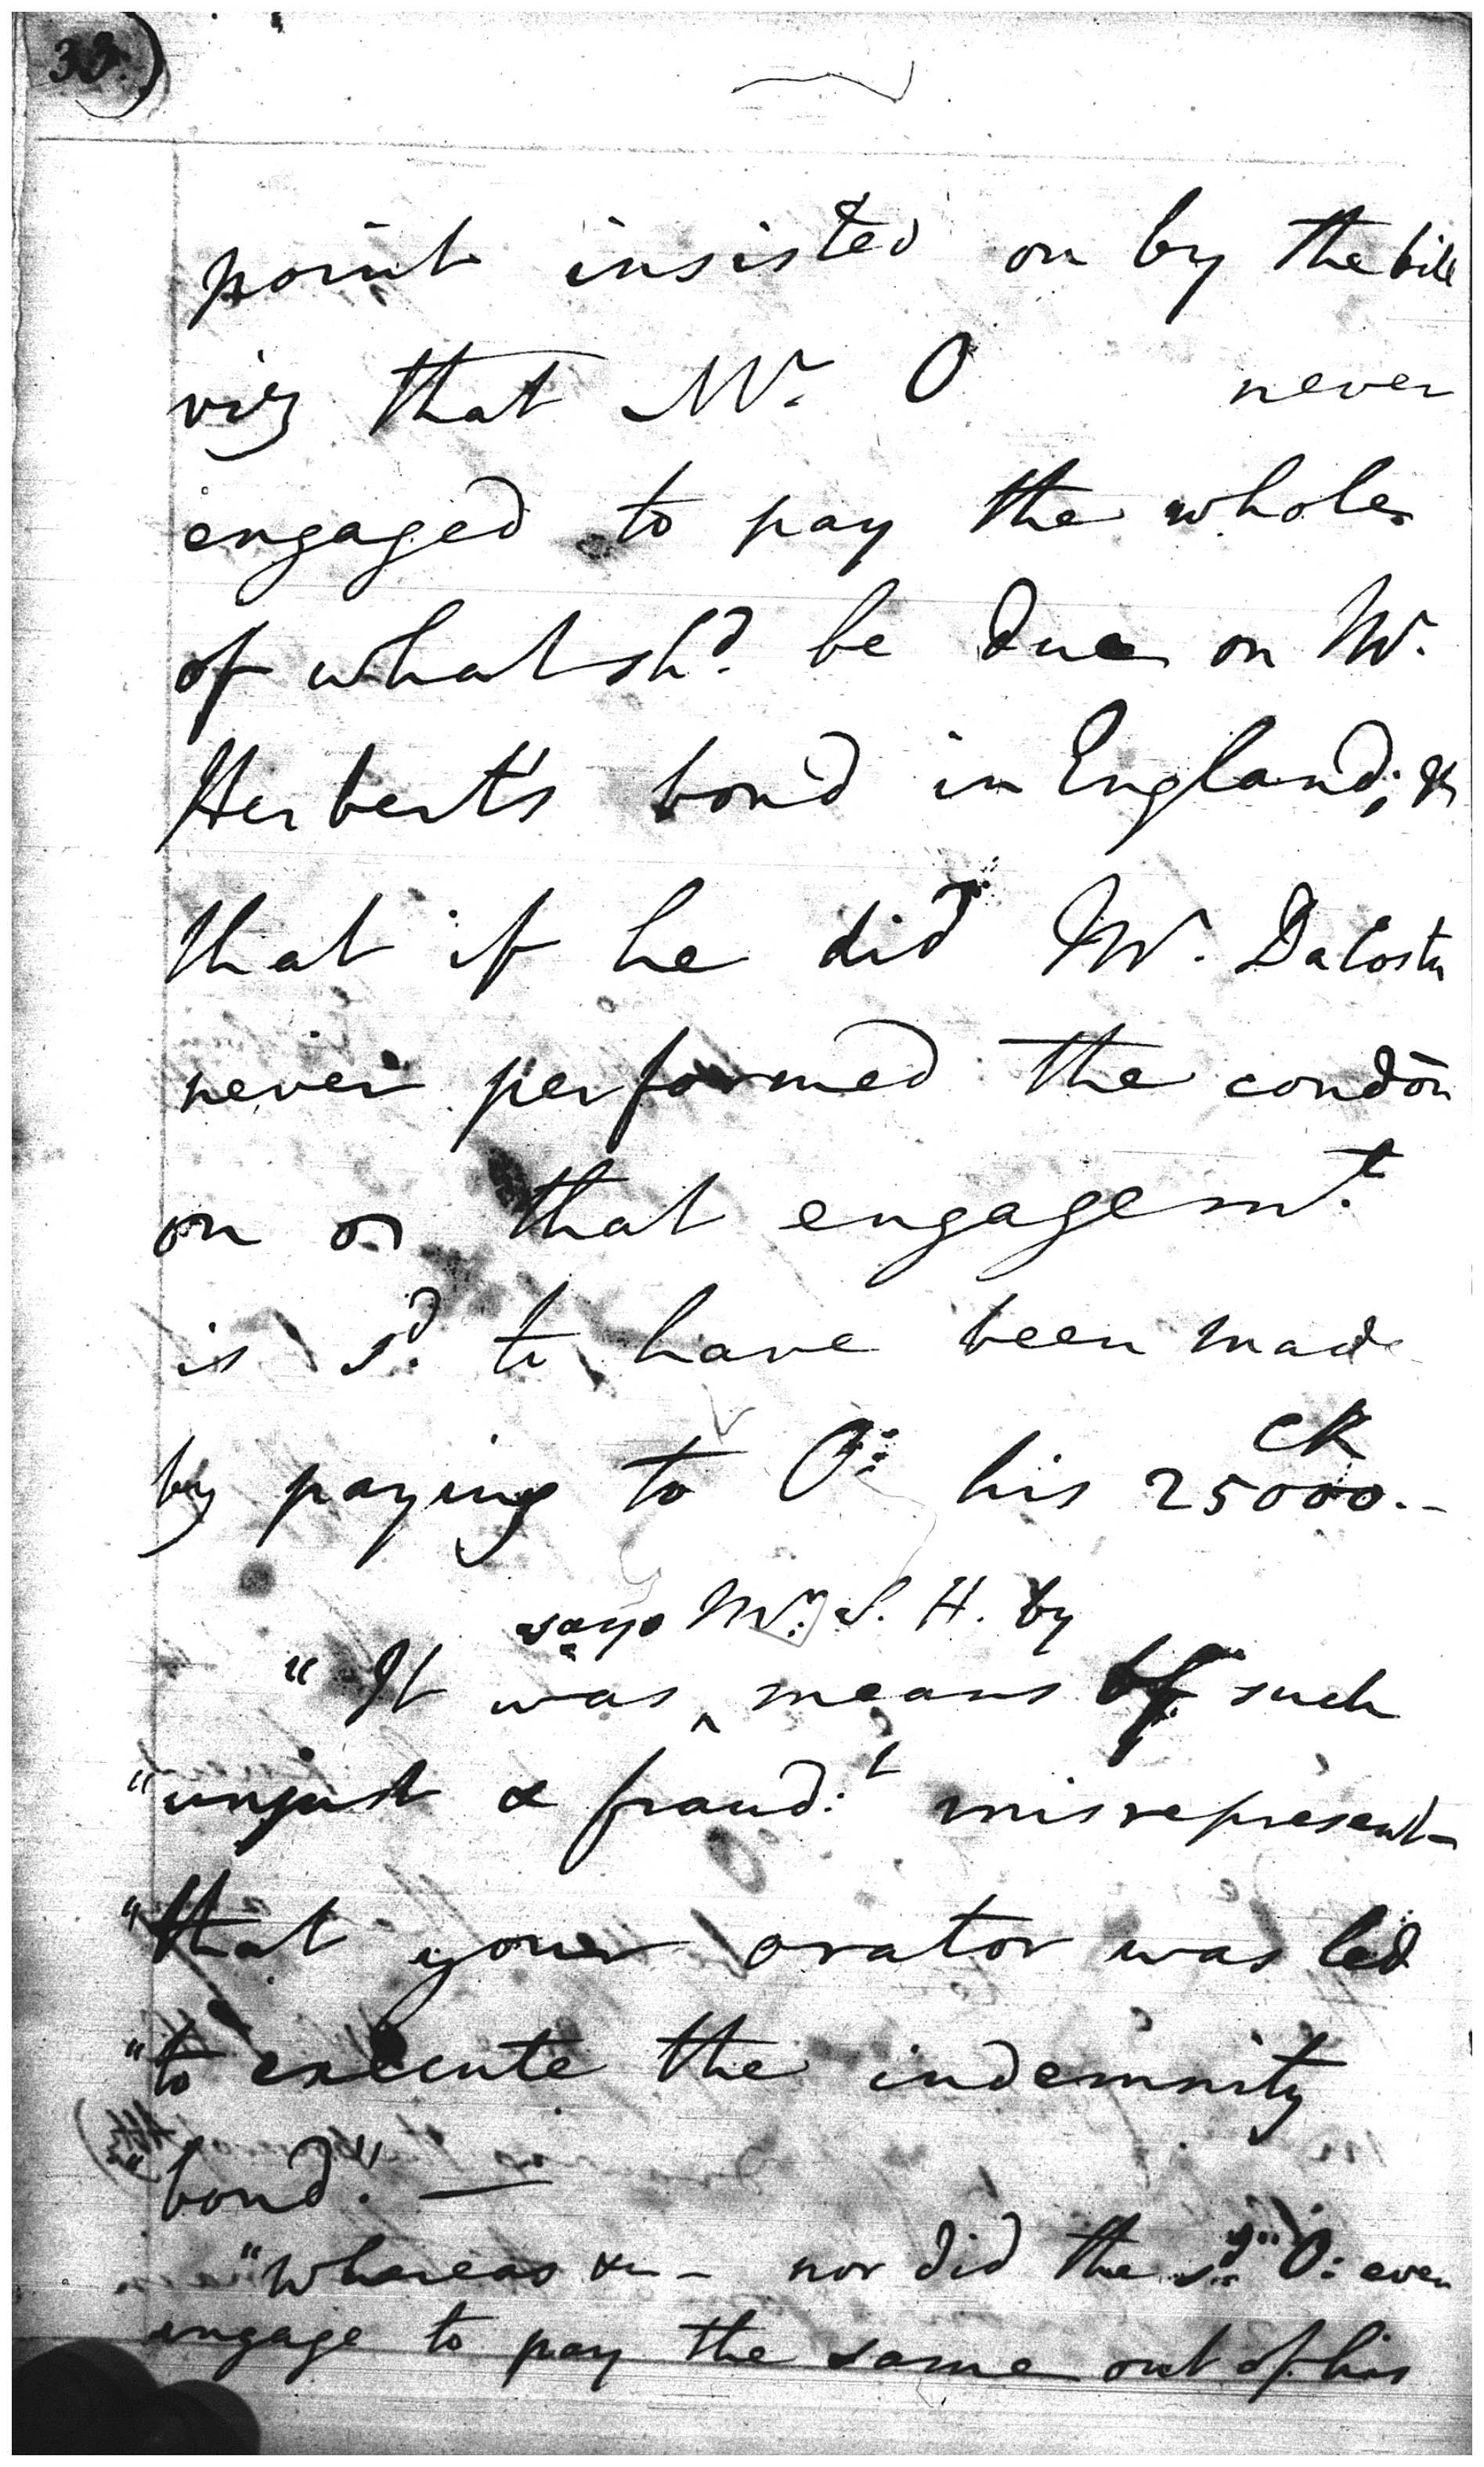 33)
point insisted on by the bill
viz that Mr. O never
engaged to pay the whole
of what shd. be due on Mr.
Herbert's bond in England; &
that if he did Mr. DaCosta
never performed the condōn
on wh that engagemt.
is sd. to have been made
by paying to O: his 25000 CR.-
says Mr. S. H. by
"It was ^ means of such
"unjust & fraud:t misrepresent-
"that your orator was led
"to execute the indemnity
"bond." —
"Whereas &c - nor did the sd. O: even
engage to pay the same out of his